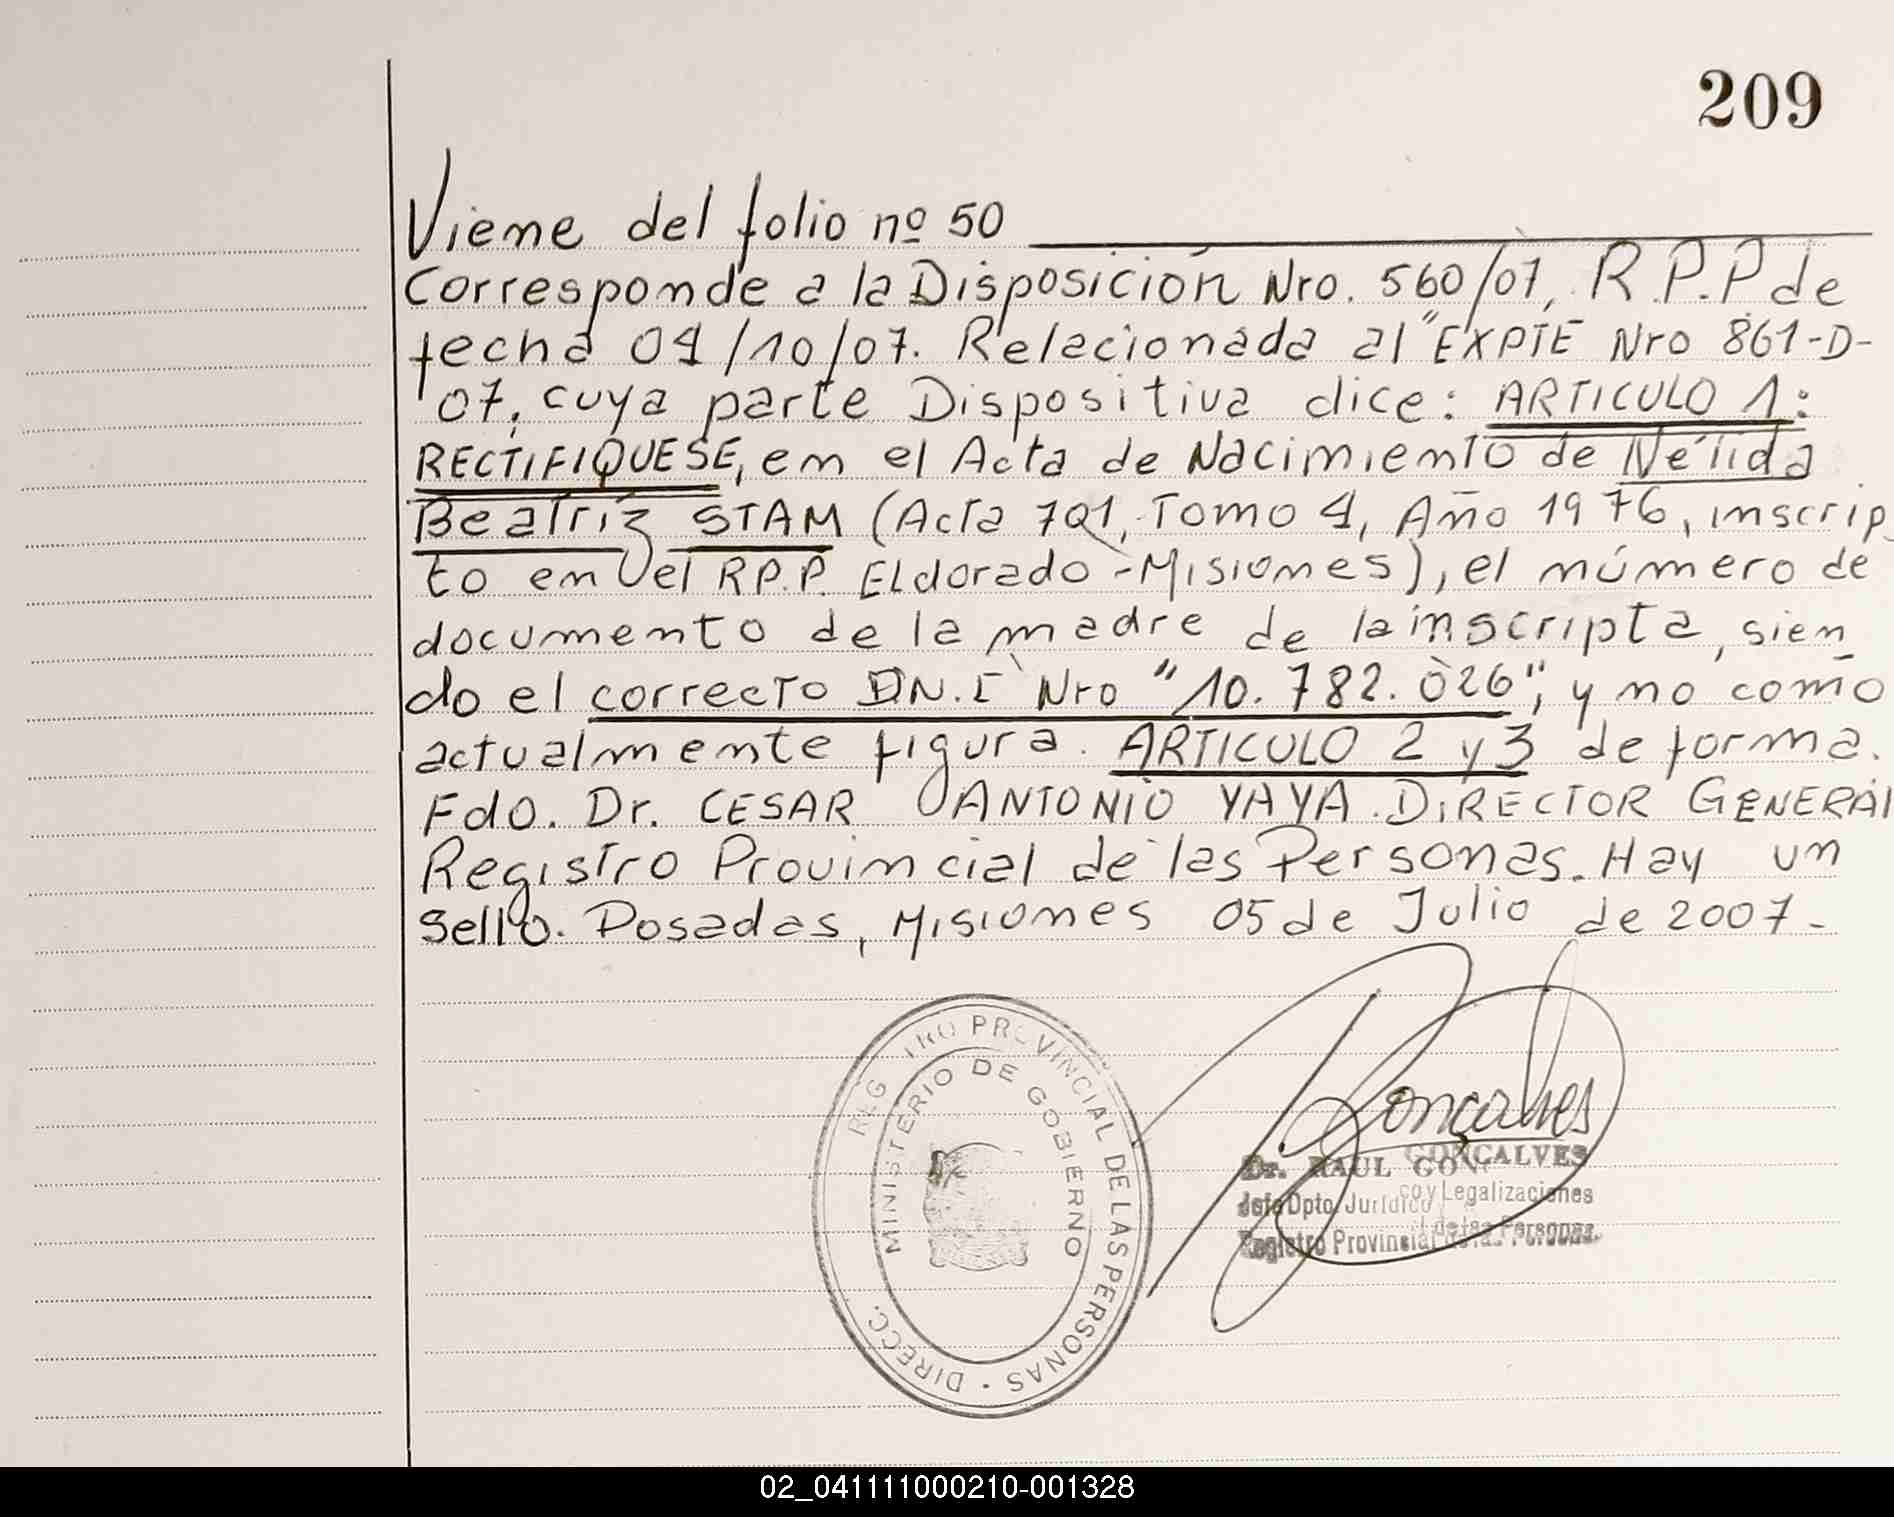 209
Viene del folio nº 50
Corresponde a la Disposición Nro. 560/07, R.P.P de
fecha 04/10/07. Relacionada al "EXPTE Nro 861-D-
07, cuya parte Dispositiva dice: ARTICULO 1:
RECTIFIQUESE, en el Acta de Nacimiento de Nélida
Beatríz STAM (Acta 701, Tomo 4, Año 1976, inscrip
to en el R.P.P. Eldorado - Misiones), el número de
documento de la madre de la inscripta, sien
do el correcto DN.I Nro "10.782.026", y no como
actualmente figura. ARTICULO 2 y 3 de forma.
Fdo. Dr. CESAR ANTONIO YAYA. DIRECTOR GENERAL
Registro Provincial de las Personas. Hay un
sello. Posadas, Misiones 05 de Julio de 2007-
DIRECC. REG TRO PROVINCIAL DE LAS PERSONAS
MINISTERIO DE GOBIERNO
Gonçalves
Dr. RAUL GONÇALVES
Jefe Dpto. Jurídico y Legalizaciones
Registro Provincial de las Personas
02_041111000210-001328